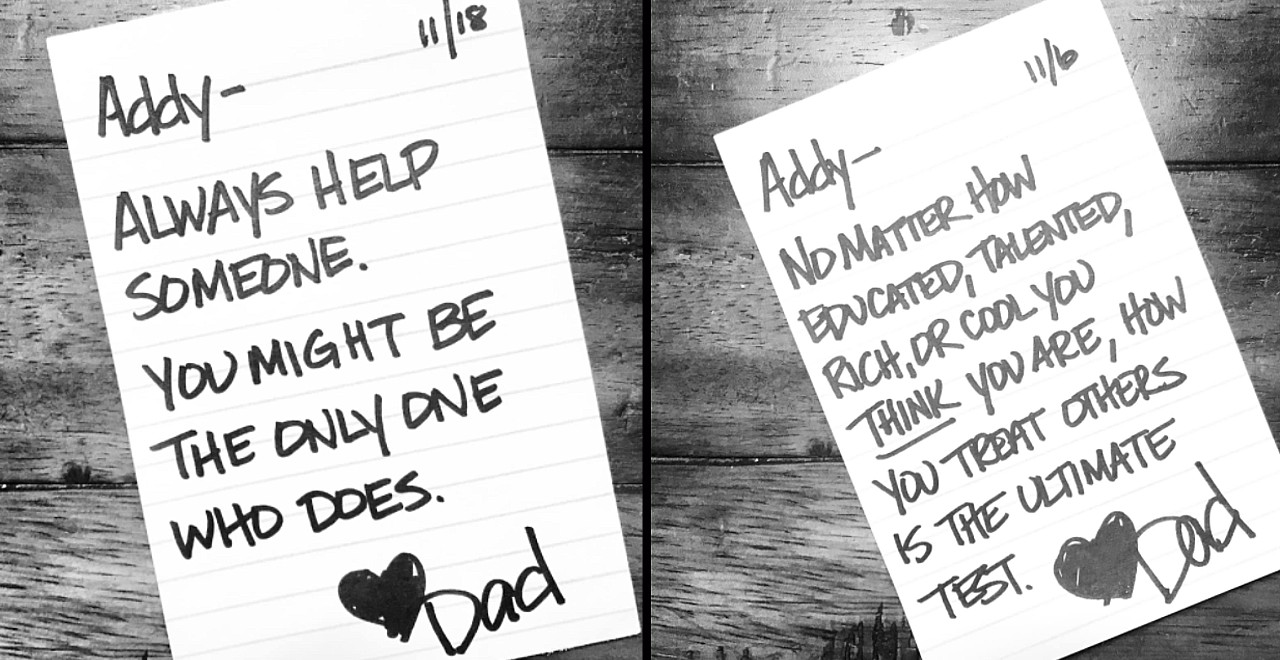 11/18
Addy-
ALWAYS HELP
SOMEONE.
YOU MIGHT BE
THE ONLY ONE
WHO DOES.
Dad
11/6
Addy-
NO MATTER HOW
EDUCATED, TALENTED,
RICH, OR COOL YOU
THINK YOU ARE, HOW
YOU TREAT OTHERS
IS THE ULTIMATE
TEST. Dad